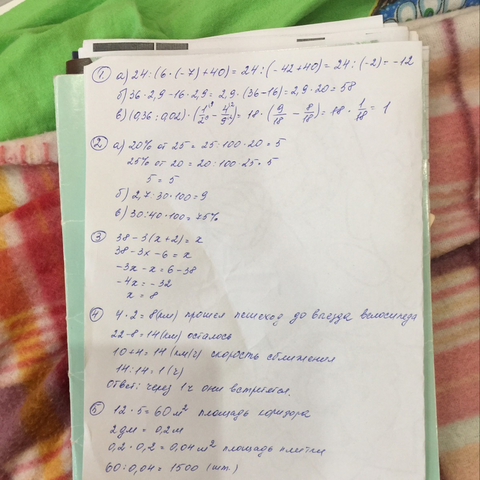 1 а) 24 : (6 · (-7) + 40) = 24 : (-42 + 40) = 24 : (-2) = -12
б) 36 · 2,9 - 16 · 2,9 = 2,9 · (36 - 16) = 2,9 · 20 = 58
в) (0,36 : 0,02) · (1/2 ⁹ - 4/9 ²) = 18 · (9/18 - 8/18) = 18 · 1/18 = 1
2 а) 20% от 25 = 25 : 100 · 20 = 5
25% от 20 = 20 : 100 · 25 = 5
5 = 5
б) 2,7 : 30 · 100 = 9
в) 30 : 40 · 100 = 75%
3 38 - 3(x + 2) = x
38 - 3x - 6 = x
-3x - x = 6 - 38
-4x = -32
x = 8
4 4 · 2 = 8 (км) прошел пешеход до выезда велосипеда
22 - 8 = 14 (км) осталось
10 + 4 = 14 (км/ч) скорость сближения
14 : 14 = 1 (ч)
Ответ: через 1ч они встретятся.
5 12 · 5 = 60 м² площадь коридора
2 дм = 0,2 м
0,2 · 0,2 = 0,04 м² площадь плитки
60 : 0,04 = 1500 (шт.)